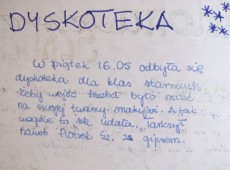 DYSKOTEKA
W piątek 16.05 odbyła się
dyskoteka dla klas starszych,
żeby wejść trzeba było mieć
na swojej twarzy makijaż. A tak
wogóle to się udała, tańczył
nawet Piotrek Sz. za gipsem.